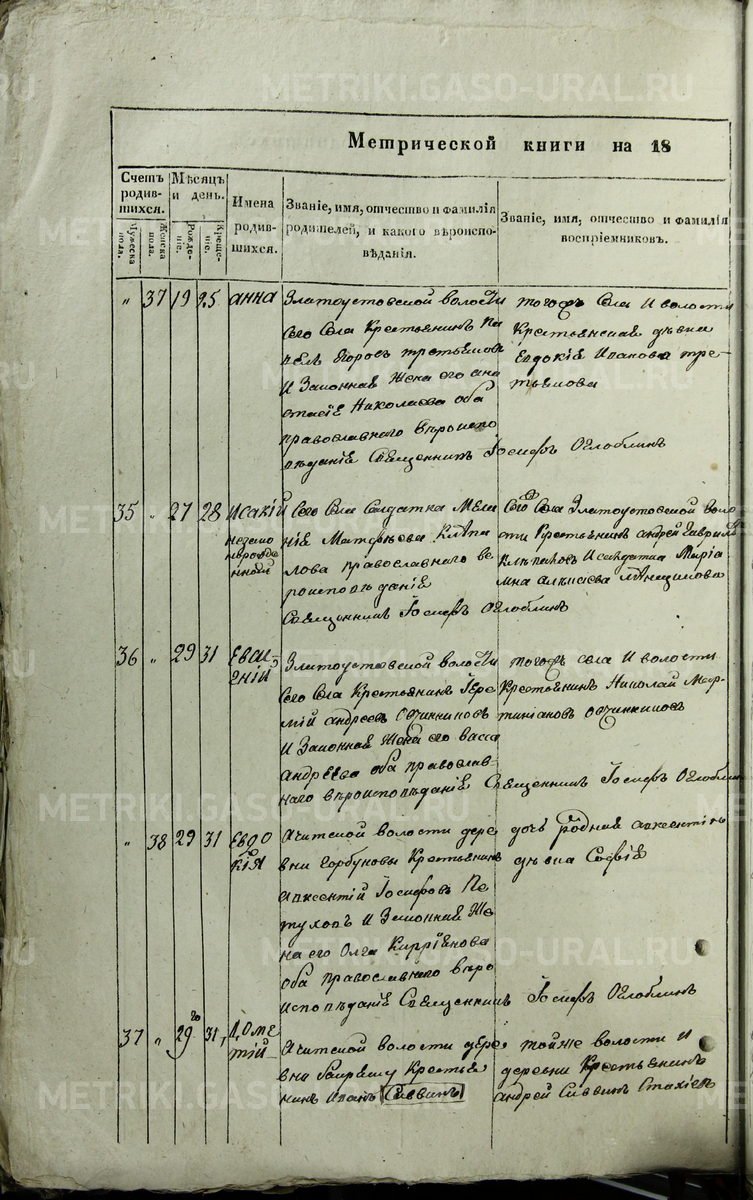 METRIKI.GASO-URAL.RU
Метрической книги на 18
Счетъ родившихся.
Мужеска пола.
Женска пола.
Мѣсяцъ и день.
Рожденіе.
Крещеніе.
Имена родившихся.
Званіе, имя, отчество и фамилія родителей, и какого вѣроисповѣданія.
Званіе, имя, отчество и фамилія воспріемниковъ.
" 37 19 25 Анна
Златоустовской волости
сего села крестьянинъ Па
велъ Егоровъ Третьяковъ
и законная жена его Ана
стасіе Николаева оба
православнаго вѣроиспо
вѣданіе Священникъ Іосифъ Оглоблинъ
тогожъ села и волости
крестьянская дѣвка
Евдокіе Иванова Тре
тьякова
35 " 27 28 Исакій
незако
ннорожде
нной
Сего села солдатка Мела
ніе Матфѣева
православнаго ве
роисповѣданіе
Священникъ Іосифъ Оглоблинъ
Сего села Златоустовской воло
сти крестьянинъ Андрей Гаврил
и солдатка Маріа
36 " 29 31 Евги=
еній
Златоустовской волости
сего села крестьянинъ Іере
мій Андреевъ Овчинниковъ
и законная жена его Васса
Андреева оба православ=
наго вѣроисповѣданіе Священникъ Іосифъ Оглоблинъ
тогожъ села и волости
крестьянинъ Николай Мар
тиніановъ Овчинниковъ
" 38 29 31 Евдо
кія
Ачитской волости дере
вни Горбуновы крестьянинъ
Авксентій Іосифовъ Пе
туховъ и законная же
на его Олга Кирріянова
оба православнаго вѣро
исповѣданіе Священникъ Іосифъ Оглоблинъ
дочь родная Авксентіе
дѣвка Софіе
37 " 29го 31 Доме
тій
Ачитской волости дере
вни крестья
нинъ Иванъ Саввинъ
тойже волости и
деревни крестьянинъ
Андрей Саввинъ